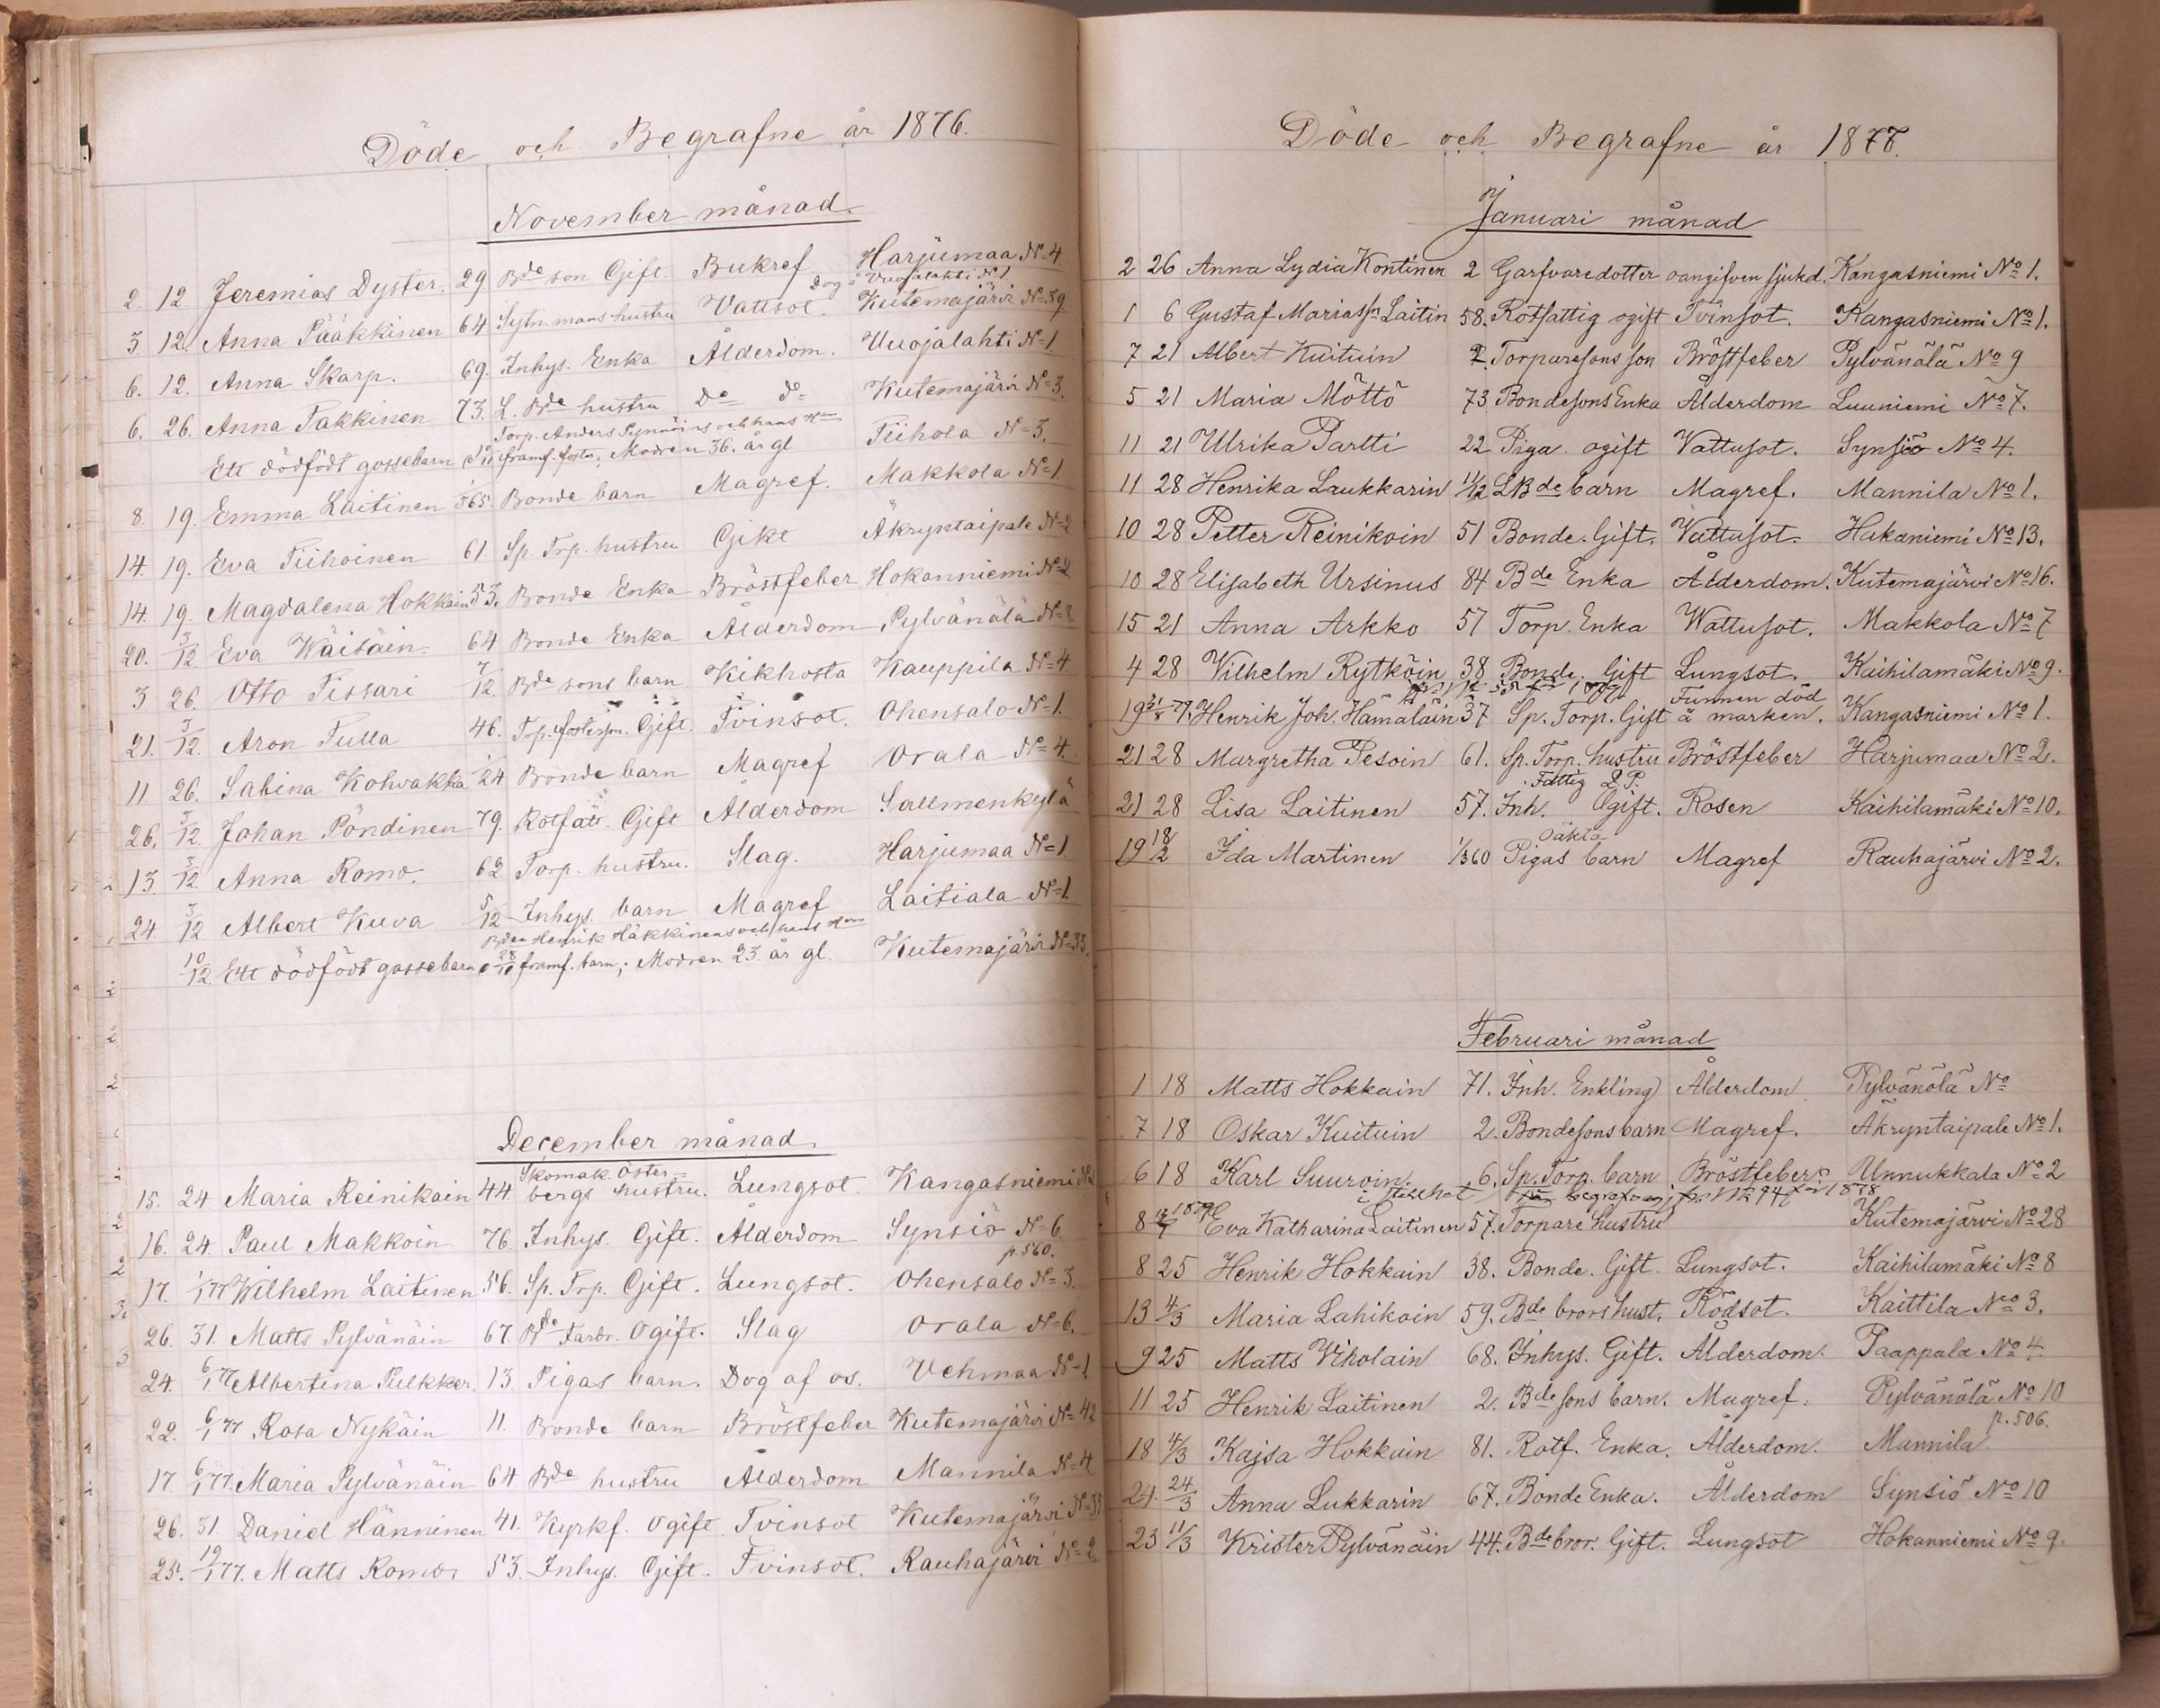 Döde och Begrafne år 1876.
November månad.
2. 12. Jeremias Dyster. 29 Bde son Gift Bukref Harjumaa No 4.
Dog i Vuojalahti No 1
3 12. Anna Pääkkinen 64 Sytn.mans hustru Vattsot. Kutemajärvi No 39
6. 12. Anna Skarp. 69. Inhys. Enka Ålderdom. Vuojalahti No 1
6. 26. Anna Takkinen 73. L. Bde hustru Do do Kutemajärvi No 3.
Torp. Anders Pynnöins och hans Hu
Ett dödfödt gossebarn framf. foster; Modren 36. år gl Tiihola No 3.
8. 19. Emma Laitinen 1/365. Bonde barn Magref. Makkola No 1
14. 19. Eva Tiihoinen 61 Sp. Trp. hustru Gikt Äkryntaipale No 2
14. 19. Magdalena Hokkain 53. Bonde Enka Bröstfeber Hokanniemi No 2
20. 3/12 Eva Wäisäin. 64 Bonde Enka Ålderdom Pylvänälä No 8
3 26. Otto Tissari 7/12. Bde sons barn Kikhosta Kauppila No 4
21. 3/12. Aron Tulla 46. Trp. fosterson. Gift. Tvinsot. Ohensalo No 1.
11 26. Sabina Kohvakka 1/24 Bonde barn Magref Orala No 4.
26. 3/12. Johan Pöndinen 79. Rotfatt. Gift Ålderdom Sallmenkylä
13. 3/12. Anna Romo. 62 Torp. hustru. Slag. Harjumaa No 1
24 3/12 Albert Kuva 5/12 Inhys. barn Magref Laitiala No 1.
Bden Henrik Häkkinens och hans Hu
10/12 Ett dödfödt gossebarn 28/10 framf. barn; Modren 23. år gl. Kutemajärvi No 33.
December månad.
Skomak. Öster-
15. 24 Maria Reinikain 44. bergs hustru. Lungsot. Kangasniemi No 1
16. 24. Paul Makkoin 76. Inhys. Gift. Ålderdom Synsiö No 6
p. 560.
17. 1/1 77 Wilhelm Laitinen 56. Sp. Trp. Gift. Lungsot. Ohensalo No 3.
26. 31. Matts Pylvänäin 67. Bde Farbr. Ogift. Slag Orala No 6.
24. 6/1 77 Albertina Pulkker. 13 Pigas barn. Dog af os. Vehmaa No 1
22. 6/1 77 Rosa Nykäin 11. Bonde barn Bröstfeber Kutemajärvi No 42
17. 6/1 77. Maria Pylvänäin 64 Bde hustru Ålderdom Mannila No 4.
26. 31. Daniel Hänninen 41. Kyrkf. Ogift Tvinsot Kutemajärvi No 33
25. 19/1 77. Matts Romo. 53. Inhys. Gift. Tvinsot. Rauhajärvi No 2
Döde och Begrafne år 1877.
Januari månad
2 26 Anna Lydia Kontinen 2 Garfvaredotter oangifven sjukd. Kangasniemi No 1.
1 6 Gustaf Mariassn Laitin 58. Rotfattig ogift Tvinsot. Kangasniemi No 1.
7 21 Albert Kuituin 2. Torparesons son Bröstfeber Pylvänälä No 9
5 21 Maria Möttö 73 Bondesons Enka Ålderdom Luuniemi No 7.
11 21 Ulrika Partti 22 Piga ogift Vattusot. Synsiö No 4.
11 28 Henrika Laukkarin 11/12 LBde barn Magref. Mannila No 1.
10 28 Petter Reinikoin 51 Bonde. Gift. Vattusot. Hakaniemi No 13.
10 28 Elisabeth Ursinus 84 Bde Enka Ålderdom. Kutemajärvi No 16.
15 21 Anna Arkko 57 Torp. Enka Wattusot. Makkola No 7
4 28 Vilhelm Rytköin 38 Bonde. Gift Lungsot. Kaihilamäki No 9.
Funnen död
19 21/8 77. Henrik Joh. Hämäläin 37 Sp. Torp. Gift å marken. Kangasniemi No 1.
21 28 Margretha Pesoin 61. Sp. Torp. hustru Bröstfeber Harjumaa No 2.
Fattig
21 28 Lisa Laitinen 57. Inh. Ogift. Rosen Kaihilamäki No 10.
Oäkta
19 18/2 Ida Martinen 1/360 Pigas barn Magref Rauhajärvi No 2.
Februari månad
1 18 Matts Hokkain 71. Inh. Enkling Ålderdom Pylvänälä No
7 18 Oskar Kuituin 2. Bondesons barn Magref. Äkryntaipale No 1.
6 18 Karl Suuroin. 6. Sp. Torp. barn Bröstfeber Unnukkala No 2
8 Eva Katharina Laitinen 57. Torpare hustru Kutemajärvi No 28
8 25 Henrik Hokkain 38. Bonde. Gift. Lungsot. Kaihilamäki No 8
13 4/3 Maria Lahikoin 59. Bde brors hust. Rödsot. Kaittila No 3.
9 25 Matts Viholain 68. Inhys. Gift. Ålderdom. Paappala No 4.
11 25 Henrik Laitinen 2. Bde sons barn. Magref. Pylvänälä No 10
p. 506.
18 4/3 Kajsa Hokkain 81. Rotf. Enka. Ålderdom. Mannila
24. 24/3 Anna Lukkarin 67. Bonde Enka. Ålderdom Synsiö No 10
23 11/3 Krister Pylvänäin 44. Bde bror. Gift. Lungsot Hokanniemi No 9.